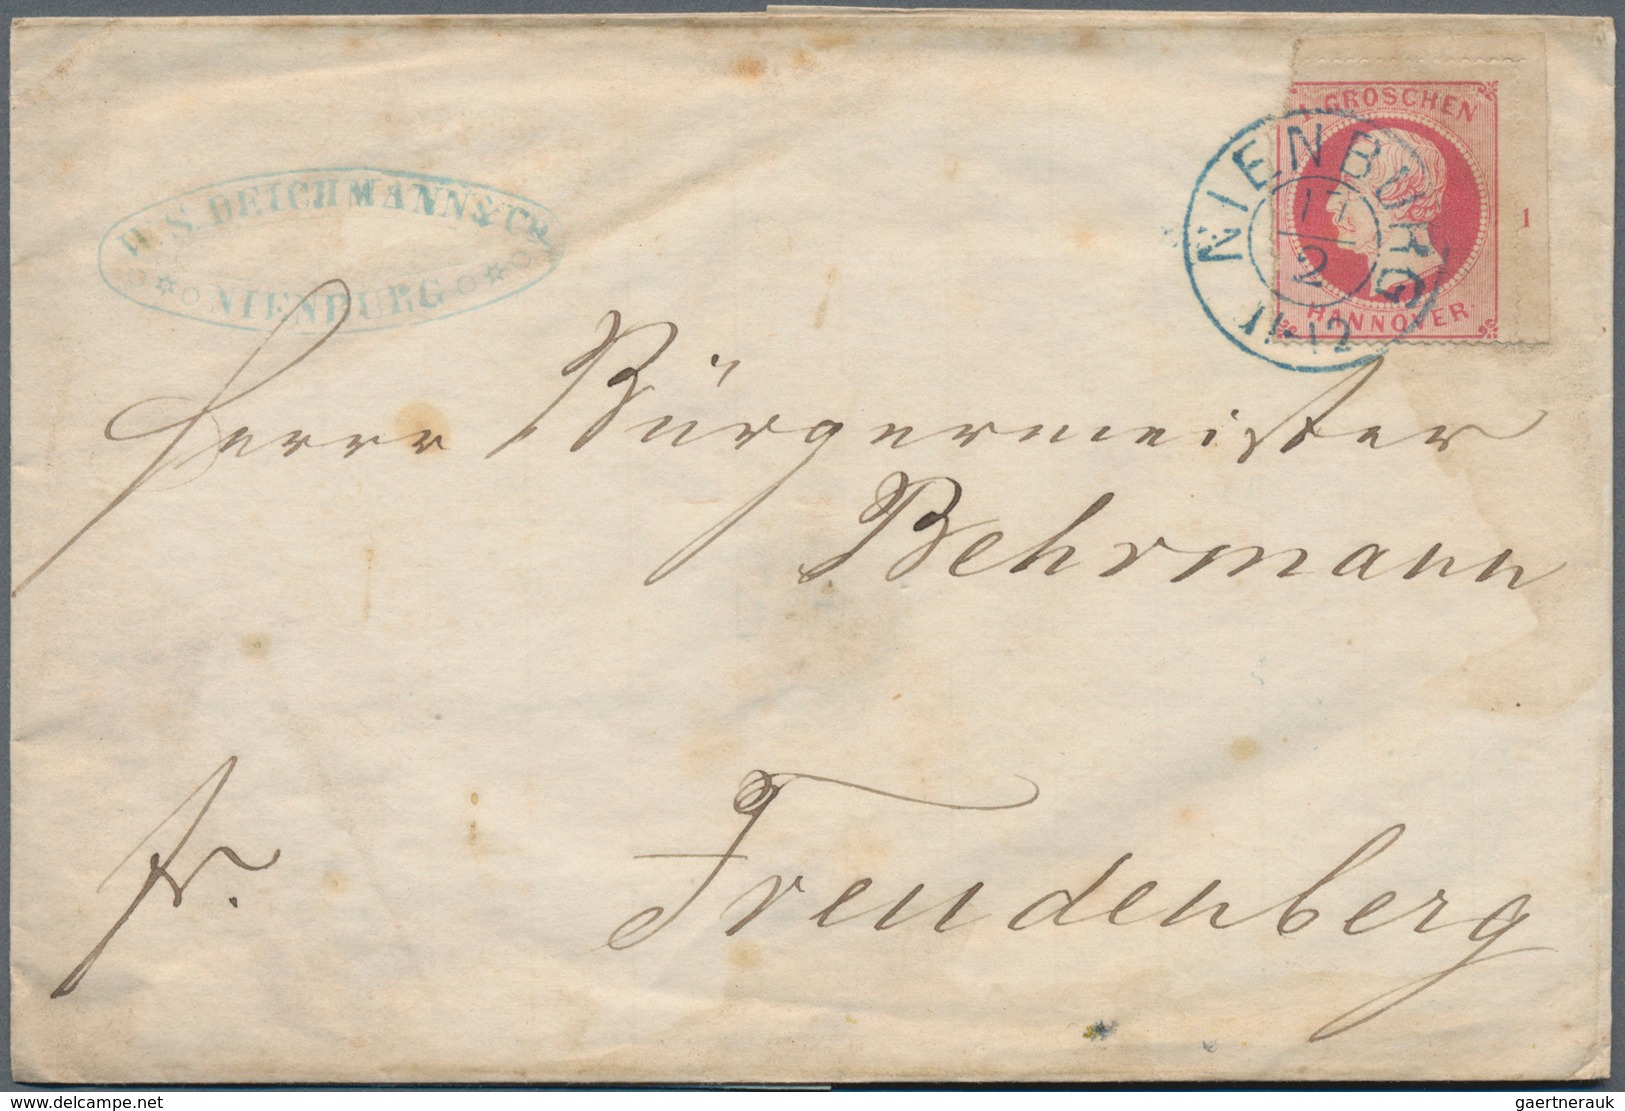 W. S. DEICHMANN & CO.
NIENBURG
GROSCHEN
HANNOVER.
1
NIENBURG
17
2
11-12
Herrn Bürgermeister
Behrmann
fr.
Freudenberg
© www.delcampe.net
gaertnerauk